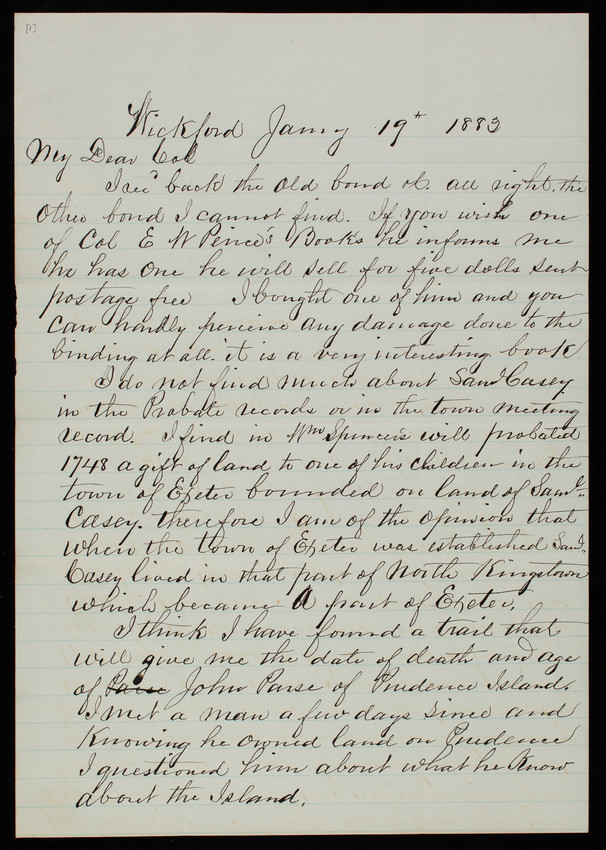 [1]
Wickford Jany 19th 1883
My Dear Col
I rec'd back the old bond &c. all right. the
other bond I cannot find. If you wish one
of Col E W Peirce's Books he informs me
he has one he will sell for five dolls sent
postage free I bought one of him and you
can hardly perceive any damage done to the
binding at all. it is a very interesting book
I do not find much about Saml Casey
in the Probate records or in the town meeting
record. I find in Wm Spencer's will probated
1748 a gift of land to one of his children in the
town of Exeter bounded on land of Saml
Casey. therefore I am of the opinion that
when the town of Exeter was established Saml
Casey lived in that part of North Kingstown
which became a part of Exeter.
I think I have found a trail that
will give me the date of death and age
of John Parse of Prudence Island.
I met a man a few days since and
Knowing he owned land on Prudence
I questioned him about what he Know
about the Island.